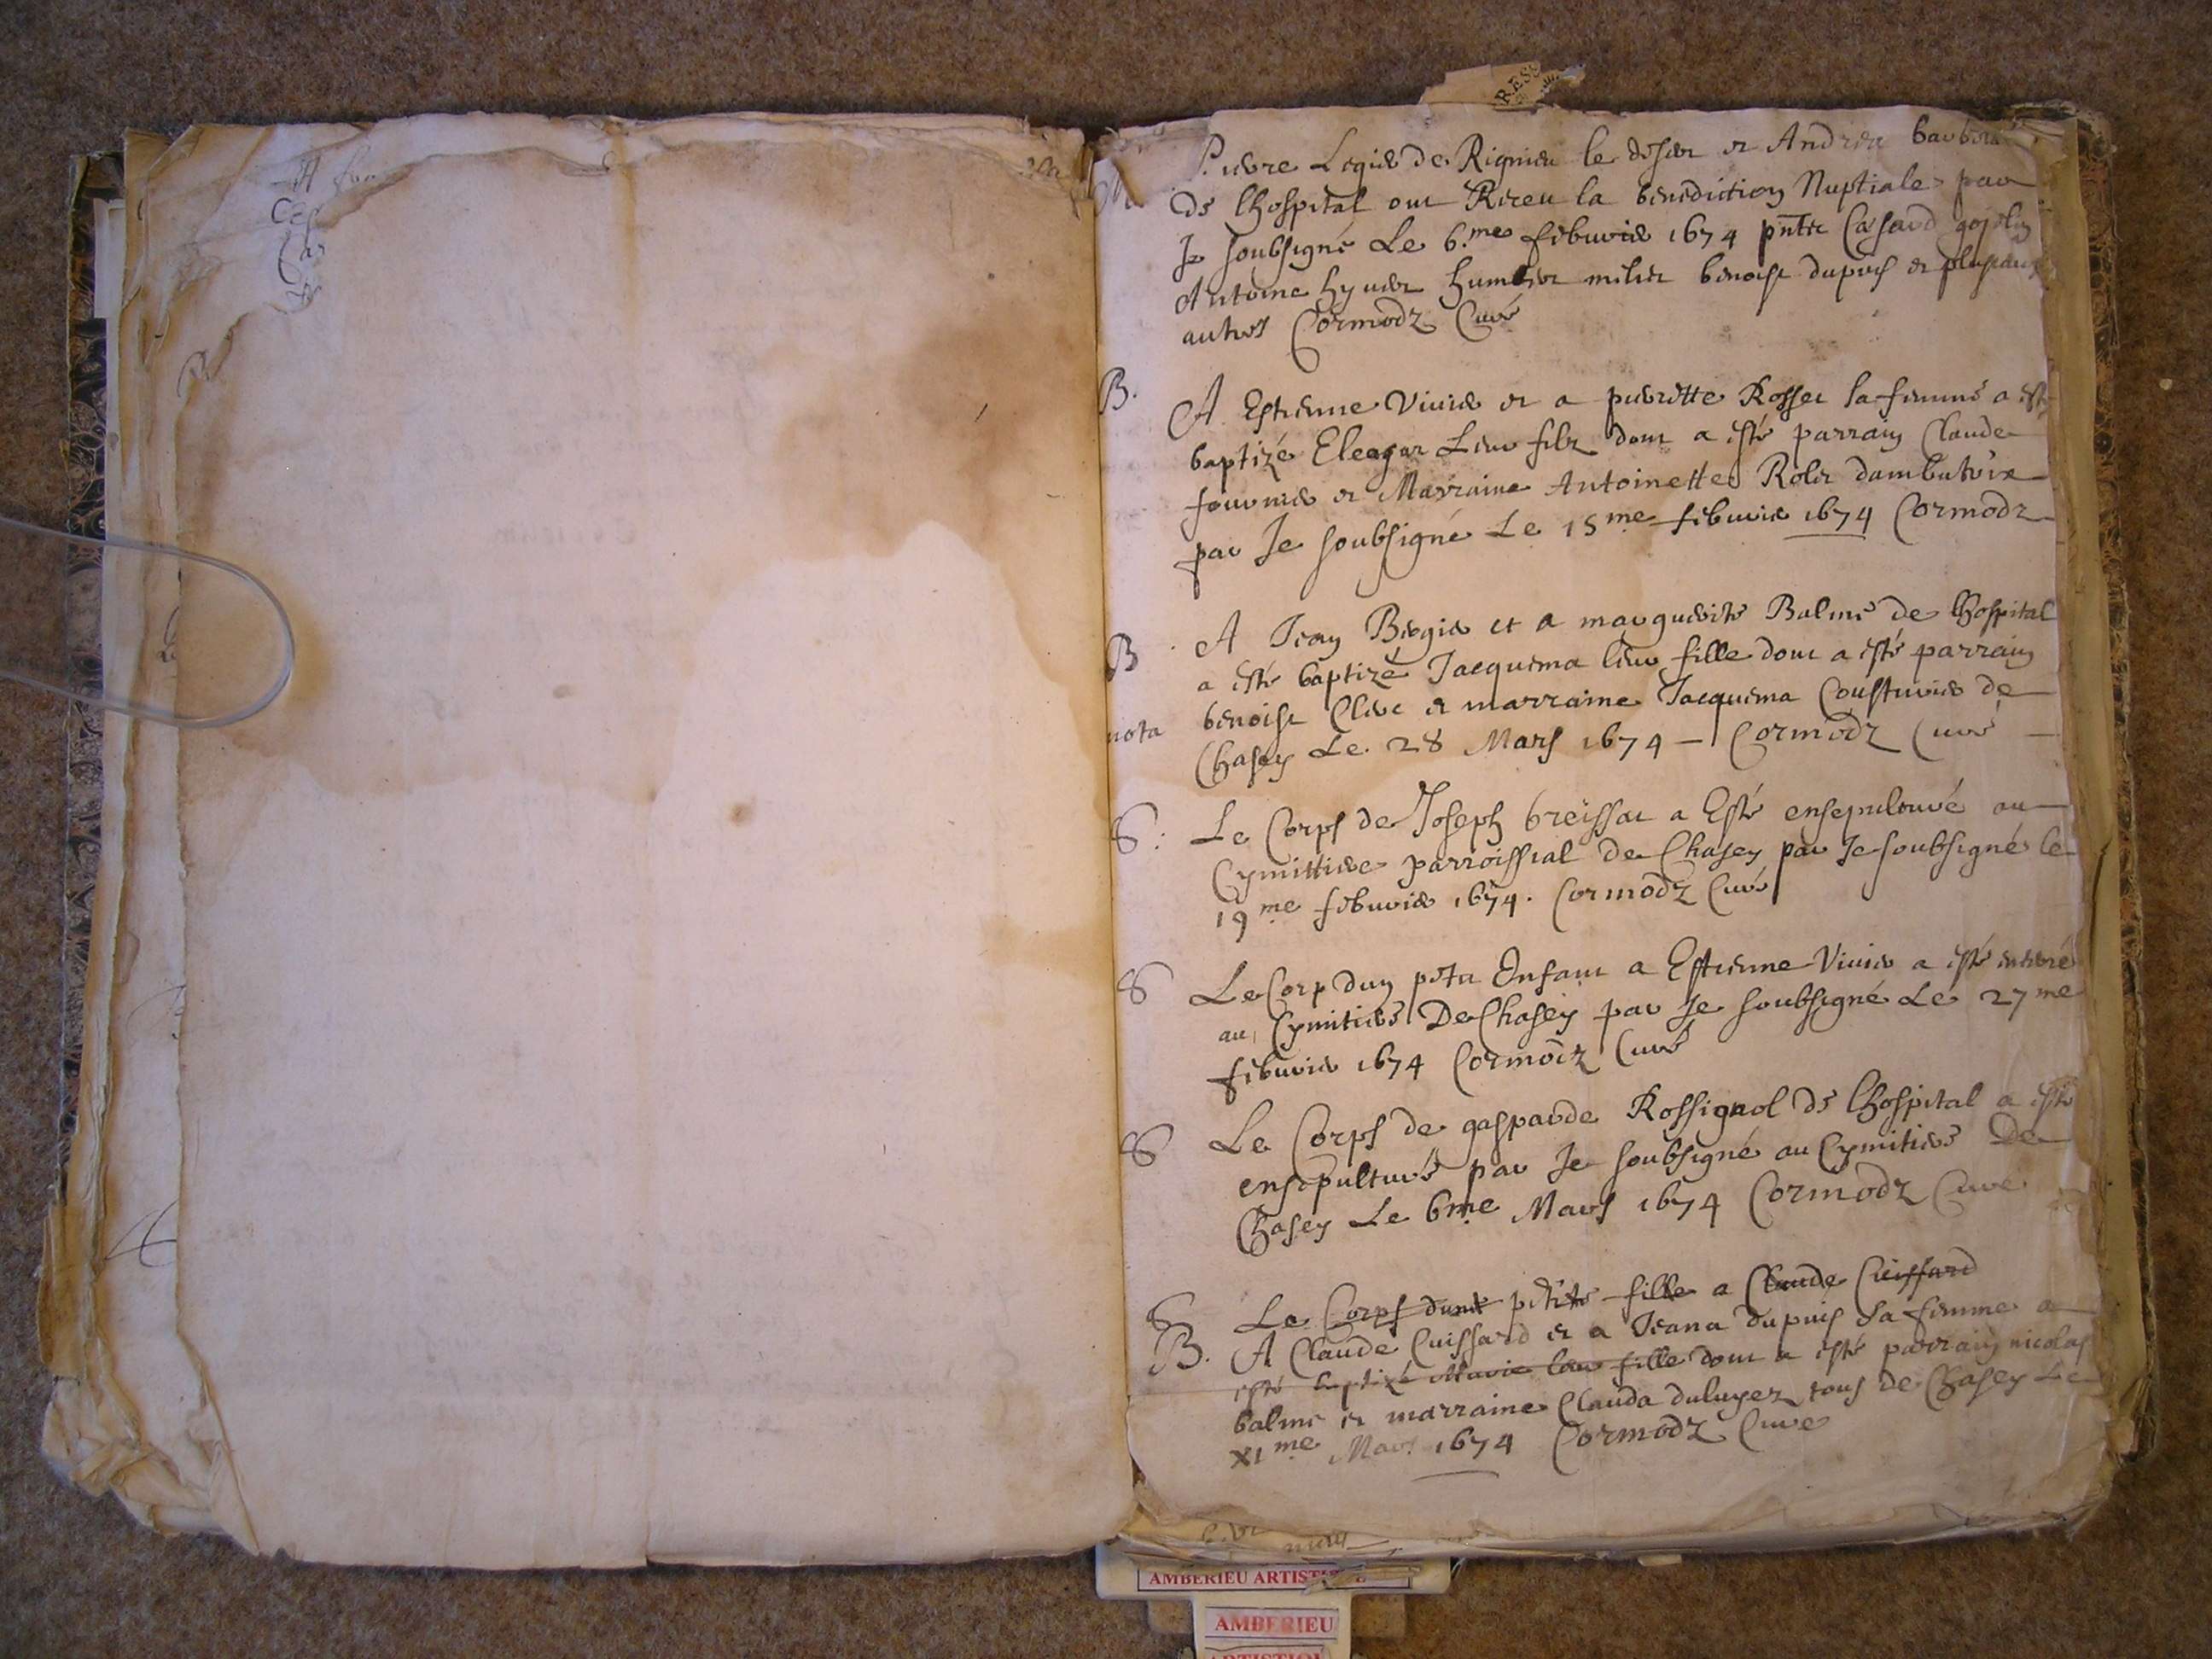 A
Ces
Car
RESS
M Pierre Legier de Rignieu le desert et Andrea
de lhospital ont Receu la benediction Nuptiale par
Je soubsigné Le 6.me febvrier 1674 pnts Casard
Antoine hyuert humbert milier benoist dupuis et plusieurs
autres Cormodz Curé
B. A Estienne Vivier et a pierrette Rosset sa femme a esté
baptizé Eleazar Leur filz dont a esté parrain Claude
fournier et Marraine Antoinette Rolet dambutrix
par Je soubsigné Le 15me febvrier 1674 Cormodz
B A Jean Bergier et a marguerite Balme de lhospital
a esté baptizé Jacquema leur fille dont a esté parrain
nota benoist Clerc et marraine Jacquema Cousturier de
Chasey Le 28 Mars 1674 – Cormodz Curé –
S: Le Corps de Joseph breissat a Esté ensepulturé au
Cymittiere parroissial de Chasey par Je soubsigné le
19me febvrier 1674. Cormodz Curé
S Le Corp dun petit Enfant a Estienne Vivier a esté enterré
au Cymitiere De Chasey par Je soubsigné Le 27me
febvrier 1674 Cormodz Curé
S Le Corps de gasparde Rossignol de lhospital a esté
ensepulturé par Je soubsigné au Cymitiere De
Chasey Le 6me Mars 1674 Cormodz Curé
S Le Corps dune petite fille a Claude Cuissard
B. A Claude Cuissard et a Jeana dupuis sa femme a
esté baptizé Marie leur fille dont a esté parrain nicolas
balme et marraine Clauda duluyez tous de Chasey Le
XIme Mars 1674 Cormodz Curé
AMBERIEU
AMBERIEU